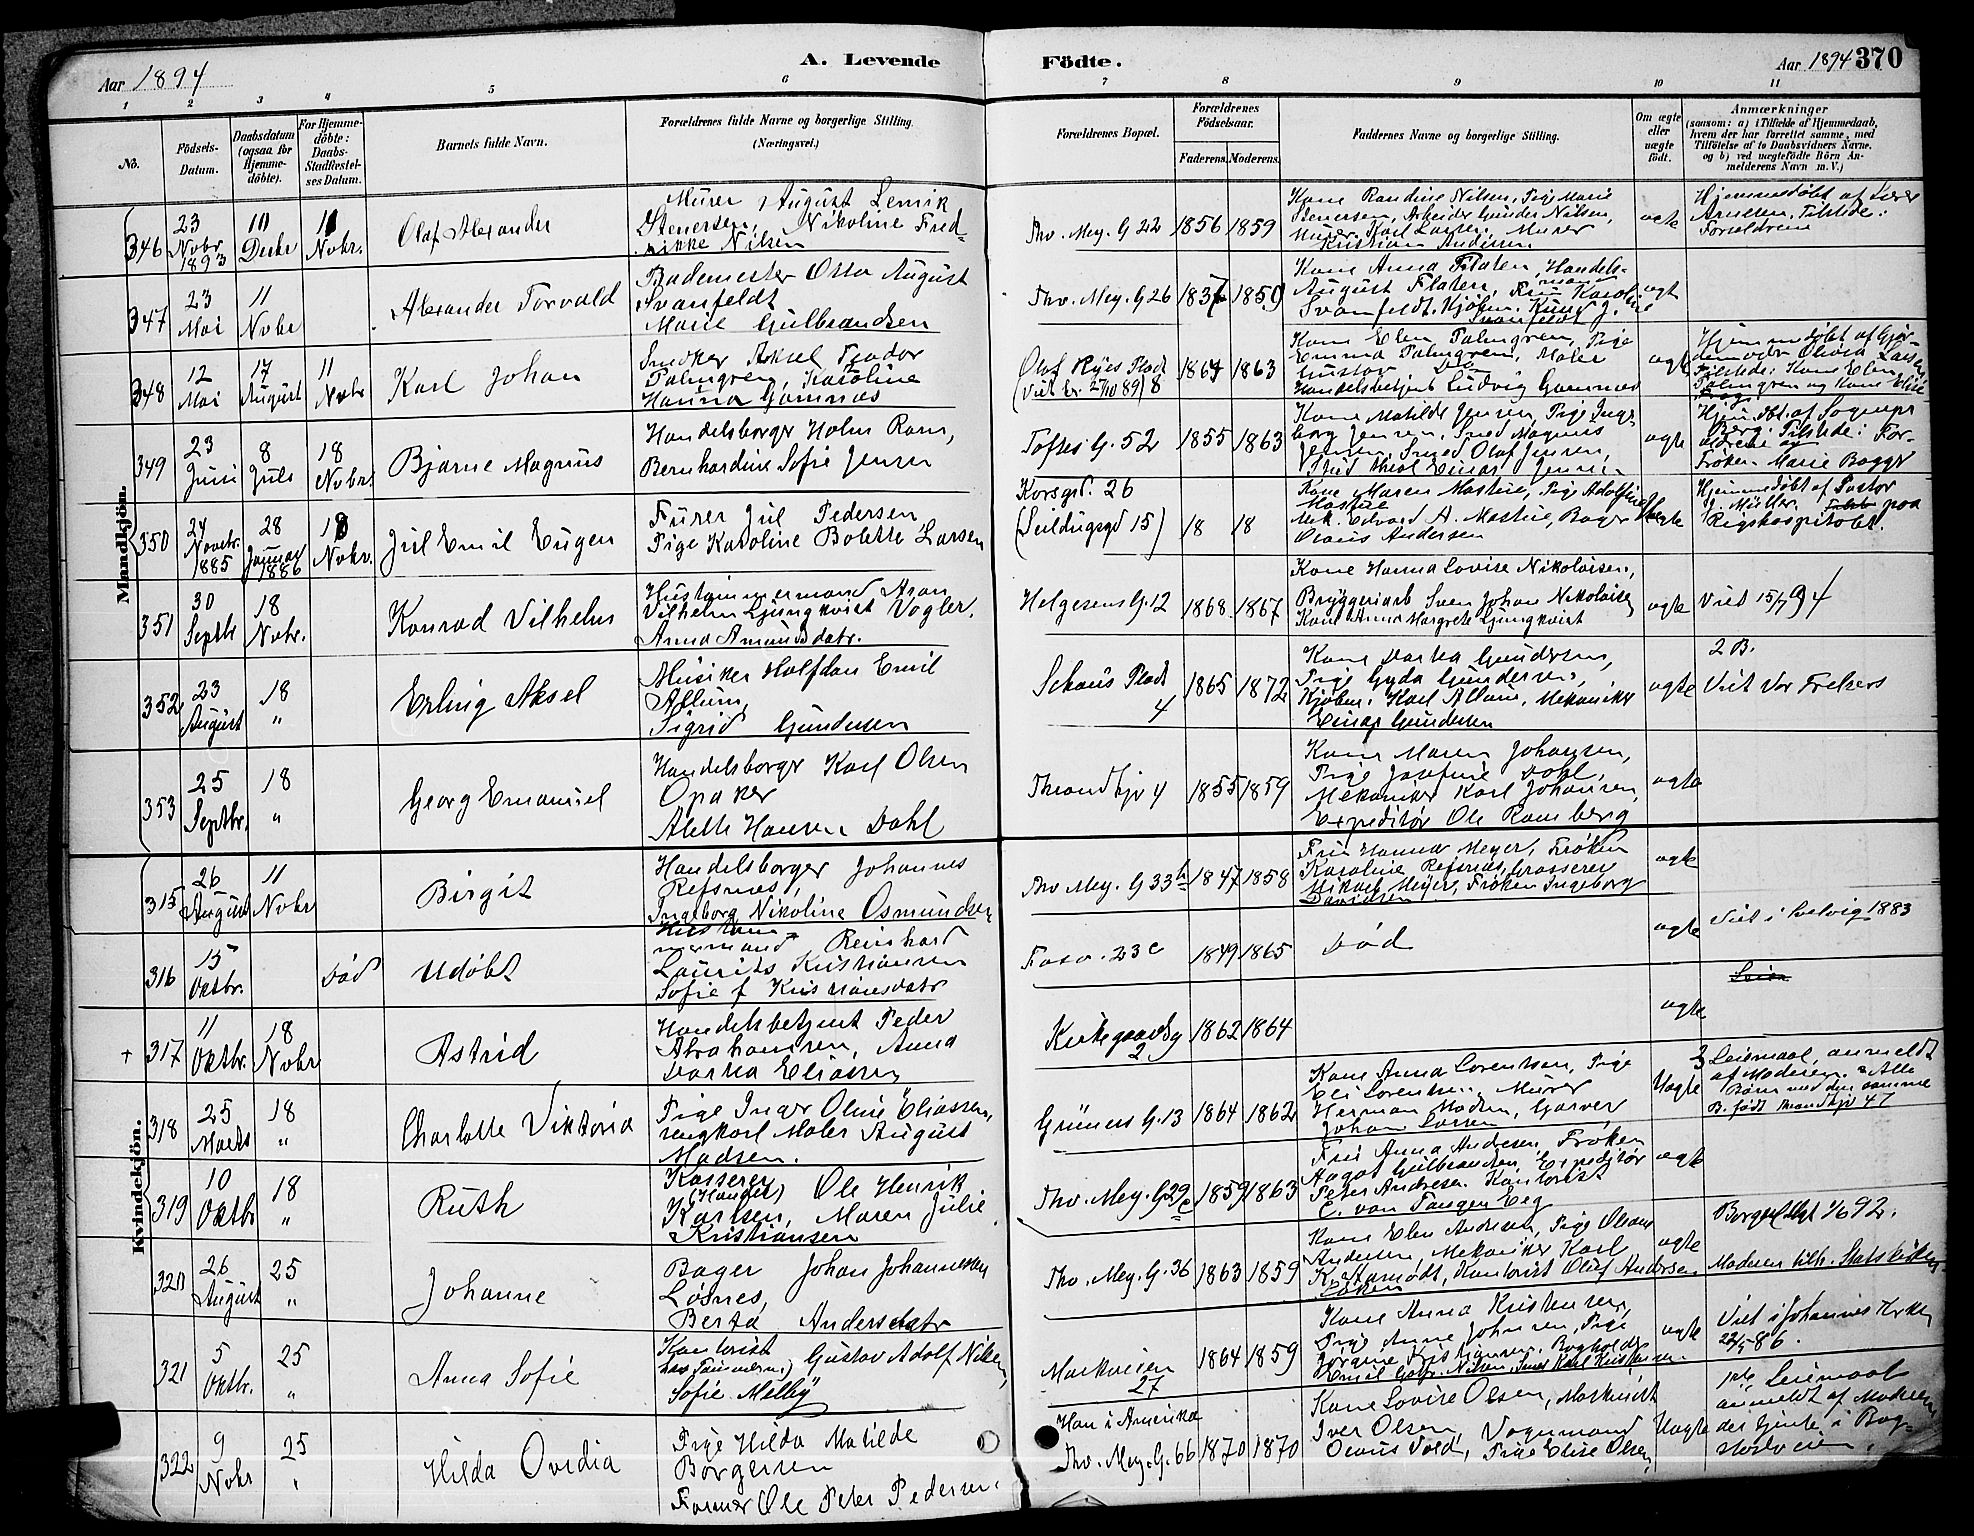 Aar 1894
A. Levende
Födte.
Aar 1894 370
1 2 3 4 5 6 7 8 9 10 11
No.
Födsels-
Datum.
Daabsdatum
(ogsaa for
Hjemme-
döbte).
For Hjemme-
döbte:
Daabs-
Stadfæstel-
ses Datum.
Barnets fulde Navn.
Forældrenes fulde Navne og borgerlige Stilling.
(Næringsvei.)
Forældrenes Bopæl.
Forældrenes
Födselsaar.
Faderens. Moderens.
Faddernes Navne og borgerlige Stilling.
Om ægte
eller
uægte
födt.
Anmærkninger
(saasom: a) i Tilfælde af Hjemmedaab,
hvem der har forrettet samme, med
Tilföielse af to Daabsvidners Navne,
og b) ved uægtefödte Börn An-
melderens Navn m. V.)
Mandkjön.
346
23
Nobr.
1893
10
Decbr
11
Nobr.
Olaf Alexander
Murer August Lenrik
Stenersen, Nikoline Fred-
rikke Nilsen
Thv. Mey. G 22
1856 1859
Kone Randine Nilsen, Pige Marie
Stenersen, Arbeider Gunder Nilsen,
Murer Karl Larsen, Murer
Kristian Andersen
ægte
Hjemmedöbt af
Arnesen, Tilstede:
Forældrene
347
23
Mai
11
Nobr
Alexander Torvald
Bademester Otto August
Svanfeldt
Marie Gulbrandsen
Thv. Mey. G 26
1837 1859
Kone Anna Flaten, Handels-
mand
August Flaten, Frue Karoline
Svanfeldt, Kjöbm. Knud J.
Svanfeldt
ægt
348
12
Mai
17
August
11
Nobr
Karl Johan
Snedker Aksel Teodor
Palmgren, Karoline
Hanna Gamnæs
Olaf Ryes Plads
(Viet br 27/10 89) 8
1867 1863
Kone Elen Palmgren, Pige
Emma Palmgren, Maler
Gustav Do
Handelsbetjent Ludvig Gamnæs
ægte
Hjemmedöbt af Gjor-
demoder Olivia Larsen,
Tilstede: Kone Elen
Palmgren og Kone Elise
349
23
Juni
8
Juli
18
Nobr
Bjarne Magnus
Handelsborger Holm Ram,
Bernhardine Sofie Jensen
Toftes G. 52
1855 1863
Kone Matilde Jensen, Pige Inge-
borg Jensen, Smed Magnus
Jensen, Smed Olaf Jensen,
Stud theol Einar Jensen
ægte
Hjem.döbt. af Sogneprs
Berg. Tilstede: For-
ældrene og
Fröken Marie Bagge
350
24
Novbr.
1885
28
Januar
1886
18
Nobr.
Jul Emil Eugen
Furer Jul Pedersen
Pige Karoline Bolette Larsen
Korsgd. 26
(Smldugsgd 15)
18 18
Kone Maren Mastue, Pige Adolfine
Mastue
Mek. Edvard A. Mastue, Bager
Olaus Andersen
Uægte
Hjemmedöbt af Pastor
J. Müller. paa
Rigshospitalet.
351
30
Septbr
18
Nobr.
Konrad Vilhelm
Hustömmermand Aron
Vilhelm Ljungkvist Vogler,
Anna Amundsdatr.
Helgesens G. 12
1868 1867
Kone Hanna Lovise Nikolaisen,
Bryggeriarb Sven Johan Nikolaisen
Kone Anna Margrete Ljungkvist
ægte
Viet 15/7 94
352
23
August
18
"
Erling Aksel
Musiker Halfdan Emil
Allum,
Sigrid Gundersen
Schous Plads
4
1865 1872
Kone Dorthea Gundersen,
Pige Gyda Gundersen,
Kjöbm. Karl Allum, Mekaniker
Einar Gundersen
ægte
2 B.
Viet Vor Frelsers
353
25
Septbr.
18
"
Georg Emanuel
Handelsborger Karl Olsen
Opaker
Alette Hansen Dahl
Throndhjv 4
1855 1859
Kone Maren Johansen,
Pige Josefine Dahl,
Mekaniker Karl Johansen,
Expeditör Ole Ramberg
ægte
Kvindekjön.
315
26
August
11
Nobr
Birgit
Handelsborger Johannes
Refsnes,
Ingeborg Nikoline Osmundsen
Thv Mey. G 33 b
1847 1858
Frue Hanna Meyer, Fröken
Karoline Refsnes, Grosserer
Mikael Meyer, Fröken Ingeborg
Davidsen
ægte
316
15
Oktbr.
Död
Udöbt
Hustöm-
mermand Reinhard
Laurits Kristiansen
Sofie f Kristiansdatr
Fossv. 23 c
1849 1865
Död
ægte
Viet i Svelvig 1883
+ 317
11
Oktbr.
18
Nobr
Astrid
Handelsbetjent Peder
Abrahamsen, Anna
Dorthea Eliasen
Kirkegaardsg
2
1862 1864
ægte
318
25
Marts
18
"
Charlotte Viktoria
Pige Inger Oline Eliassen,
ungkarl Maler August
Madsen.
Grüners G. 13
1864 1862
Kone Anna Lorentsen, Pige
Eli Lorentsen, Murer
Herman Madsen, Garver
Johan Larsen
Uægte
3 Leiemaal, anmeldt
af Moderen. Alle
Börn med den samme
B. född Throndhjv 47
319
10
Oktbr
18
"
Ruth
Kasserer
(Handel) Ole Henrik
Karlsen, Maren Julie
Kristiansen
Thv. Mey. G. 29 c
1859 1863
Frue Anna Andresen, Fröken
Aagot Gulbrandsen, Expeditör
Peter Andresen, Kontorist
C. von Tangen Eeg
ægte
320
26
August
25
"
Johanne
Bager Johan Johannesen
Lösnes,
Berta Andersdatr
Thv. Mey. G. 36
1863 1859
Kone Elen Andersen, Pige Olava
Andersen, Mekaniker Karl
K. Aamodt, Kontorist Oluf Andersen
Löken
ægte
Borgerligt 1/6 92.
Moderen tilh. Statskirken
321
5
Oktbr.
25
"
Anna Sofie
Kontorist
Gustav Adolf Nilsen,
Sofie Melby
Markveien
27
1864 1859
Kone Anna Kristensen,
Pige Anne Johnsen, Pige
Jörgine Kristiansen, Bogholder
Emil Gabr. Nilsen, Smed Karl Kristiansen
ægte
Viet i Johannes Kirken
22/5 86.
322
9
Nobr
25
"
Hilda Ovedia
Pige Hilda Matilde
Borgersen
Former Ole Peter Pedersen.
Han i Amerika
Thv. Mey. G. 66
1870 1870
Kone Lovise Olsen, Maskinist
Iver Olsen, Vognmand
Olaus Vold, Pige Elise Olsen,
Uægte
1ste Leiemaal
anmeldt af Moderen
der tjente i Bog-
stadveien.